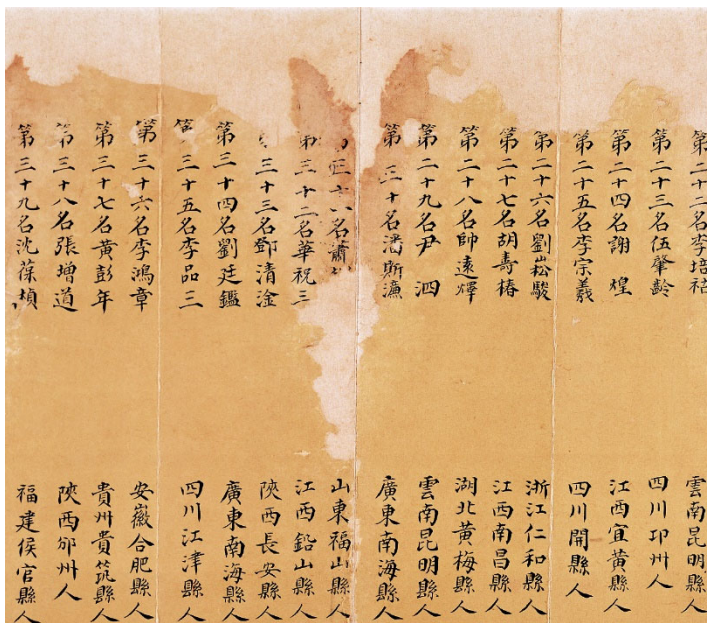 第二十二名李培祜 雲南昆明縣人
第二十三名伍肇齡 四川邛州人
第二十四名謝 煌 江西宜黃縣人
第二十五名李宗羲 四川開縣人
第二十六名劉崧駿 浙江仁和縣人
第二十七名胡壽椿 江西南昌縣人
第二十八名帥遠燡 湖北黃梅縣人
第二十九名尹 泗 雲南昆明縣人
第三十名潘斯濂 廣東南海縣人
名蕭 山東福山縣人
三十二名華祝三 江西鉛山縣人
三十三名鄧清淦 陝西長安縣人
第三十四名劉廷鑑 廣東南海縣人
三十五名李品三 四川江津縣人
第三十六名李鴻章 安徽合肥縣人
第三十七名黃彭年 貴州貴筑縣人
第三十八名張增道 陝西邠州人
第三十九名沈葆楨 福建侯官縣人